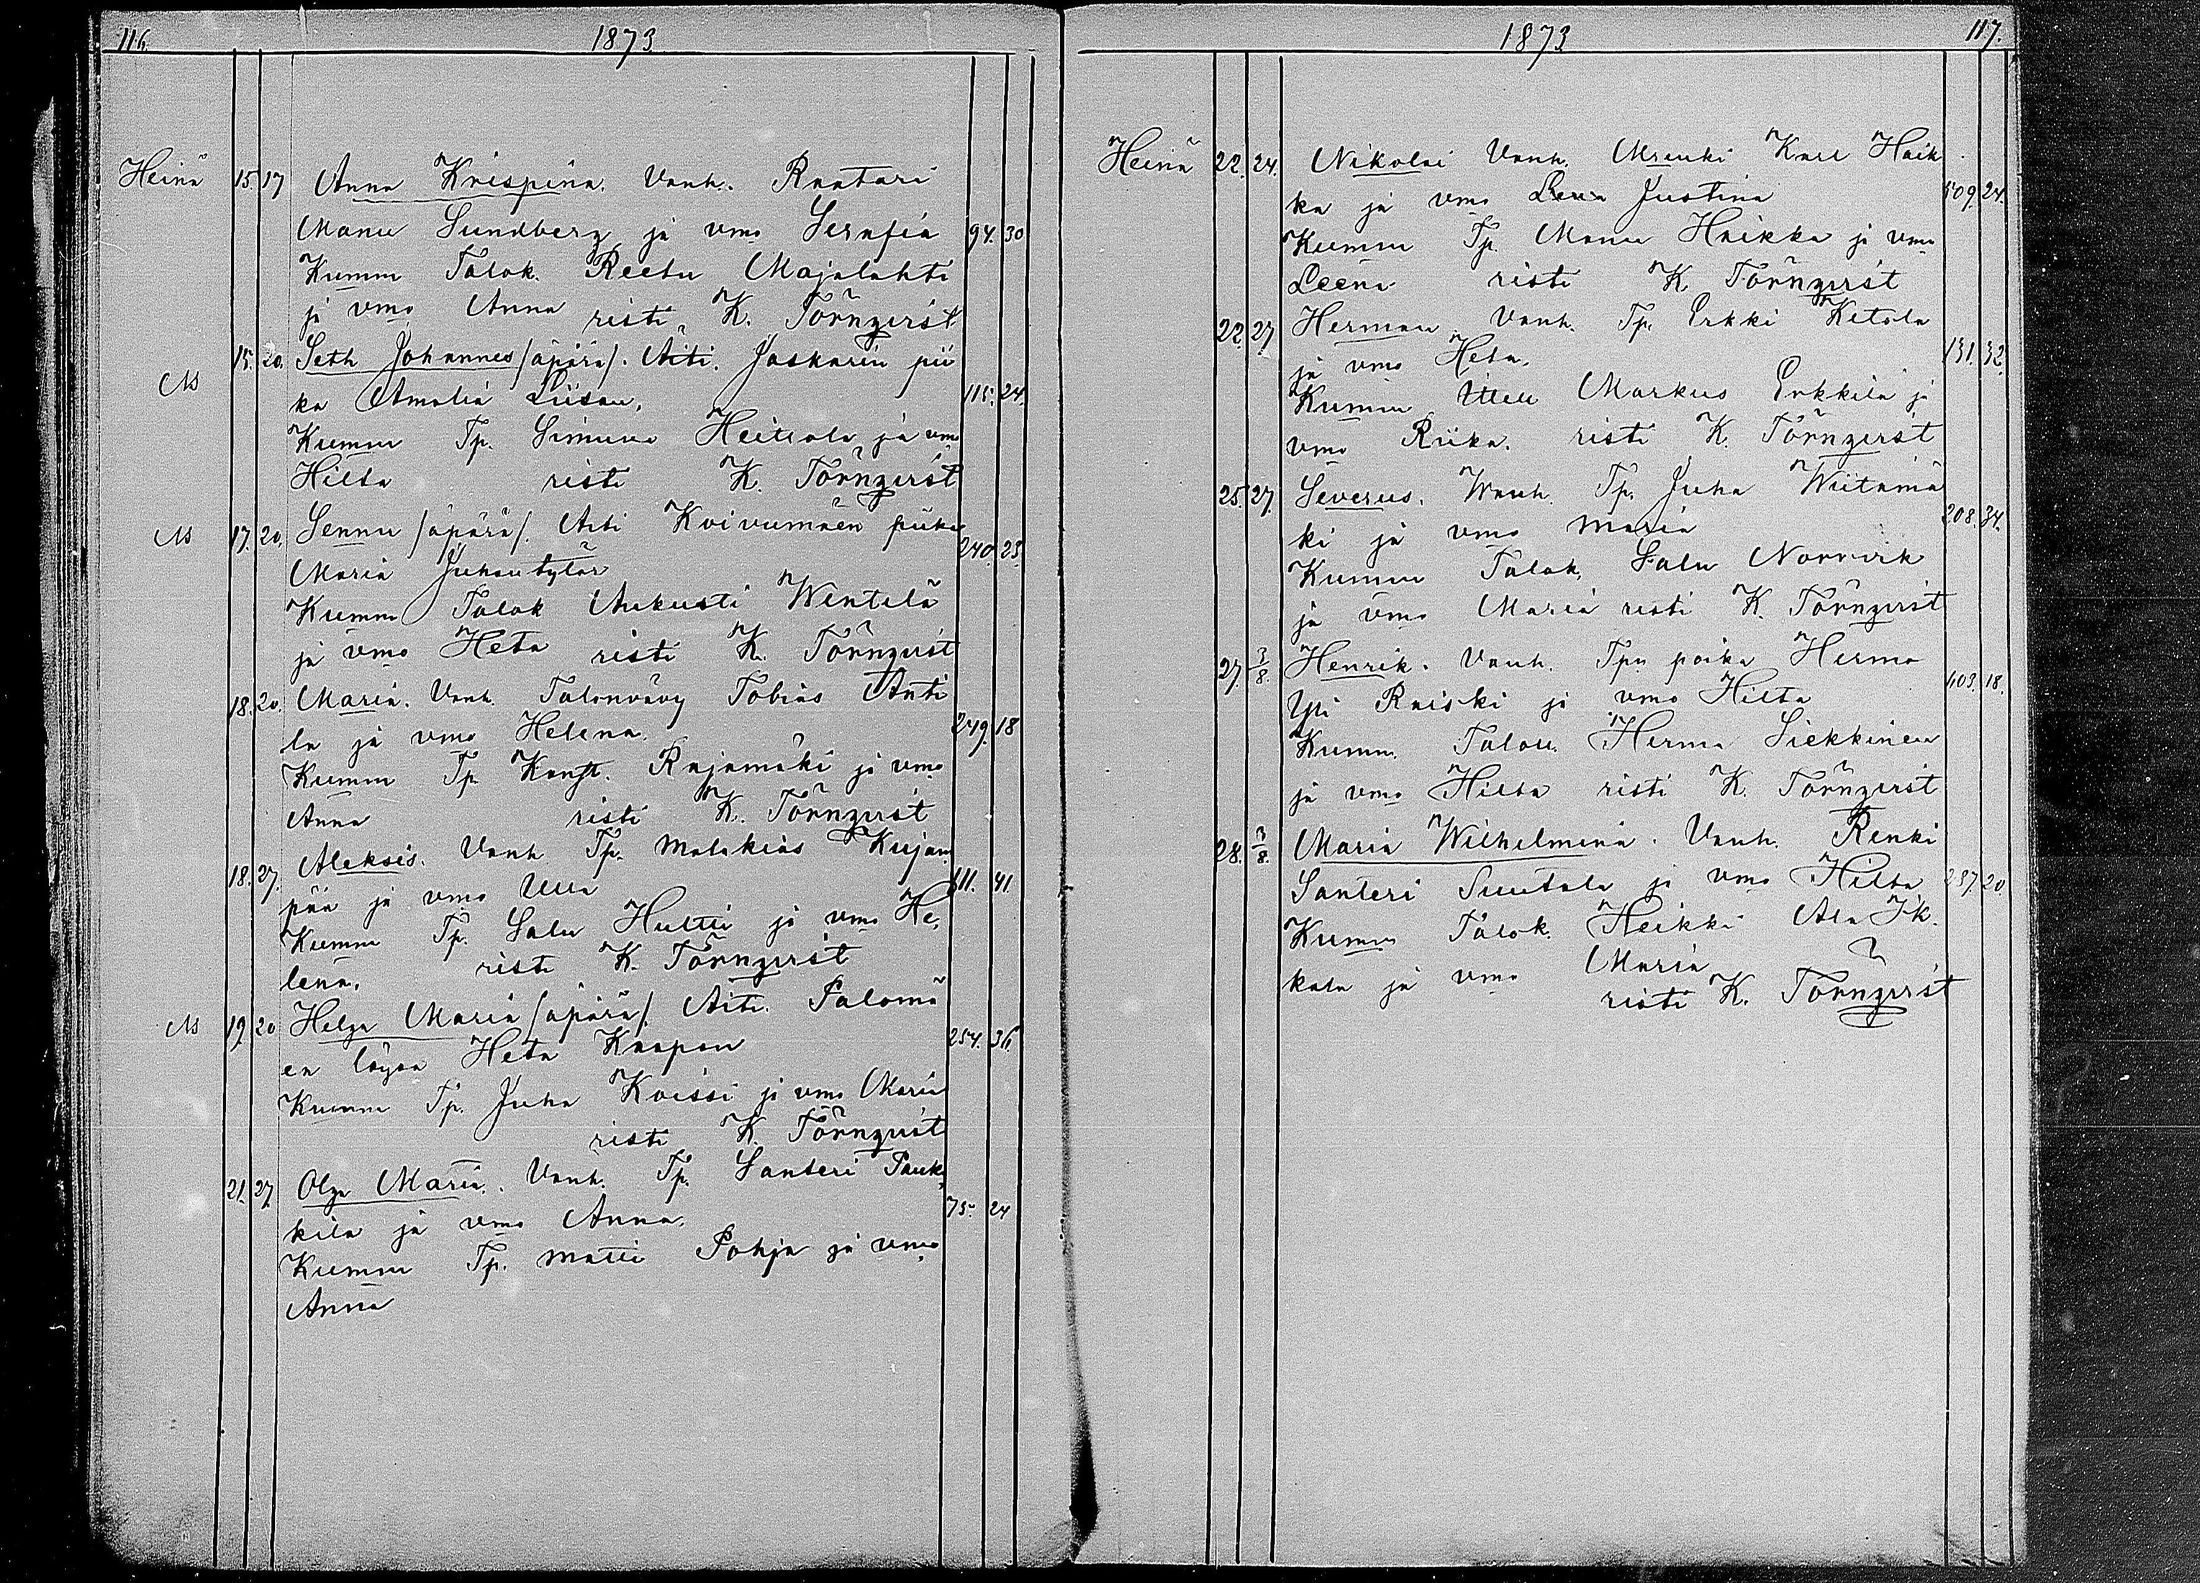 116. 1873
Heinä 15. 17 Anna Krispina. Vanh. Raatari
Manu Sundberg ja vmo Serafia 94. 30
Kumm Talok. Reetu Majalahti
ja vmo Anna risti K. Törnqvist
15. 20. Seth Johannes /äpärä/. Äiti. Jaskarin pii
ka Amalia Liisan. 115. 24.
Kumm Tp. Simuna Heitsola ja vmo
Hilta risti K. Törnqvist
17. 20. Sennu /äpärä/. Äiti Koivumäen piika
Maria Juhantytär 240. 23.
Kumm Talok Aukusti Wentelä
ja vmo Heta risti K. Törnqvist
18. 20. Maria. Vanh. Talonvävy Tobias Anti
la ja vmo Helena. 249. 18
Kumm Tp Konst. Rajamäki ja vmo
Anna risti K. Törnqvist
18. 27. Aleksis. Vanh Tp. Malakias Kujan
pää ja vmo Ulla 111. 41.
Kumm Tp. Salu Hultti ja vmo He,
lena. risti K. Törnqvist
19. 20 Helga Maria /äpärä/. Äiti. Palomä
en löysä Heta Kaapon 254. 36.
Kumm Tp. Juha Koissi ja vmo Maria
risti K. Törnqvist
21. 27. Olga Maria. Vanh. Tp. Santeri Pauk,
kila ja vmo Anna. 75. 24
Kumm Tp. Matti Pohja ja vmo
Anna
1873 117.
Heinä 22. 24. Nikolai Vanh. Mrenki Karl Haik
ka ja vmo Leena Justina 509. 24.
Kumm Tp. Manu Haikka ja vmo
Leena risti K Törnqvist
22. 27 Herman Vanh. Tp. Erkki Ketola
ja vmo Heta. 131. 32.
Kumm Markus Erkkilä ja
vmo Riika. risti K. Törnqvist
25. 27. Severus. Wanh. Tp. Juha Wiitamä
ki ja vmo Maria 208. 34.
Kumm Talok. Salu Norrvik
ja vmo Maria risti K. Törnqvist
27. 3/8. Henrik. Vanh. Tpn poika Herma
Yli Raiski ja vmo Hilta 103. 18.
Kumm. Talon. Herma Siekkinen
ja vmo Hilta risti K. Törnqvist
28. 3/8. Maria Wilhelmina. Vanh. Renki
Santeri Suutala ja vmo Hilta 287 20
Kumm Talok. Heikki Ala Ik.
kala ja vmo Maria
risti K. Törnqvist